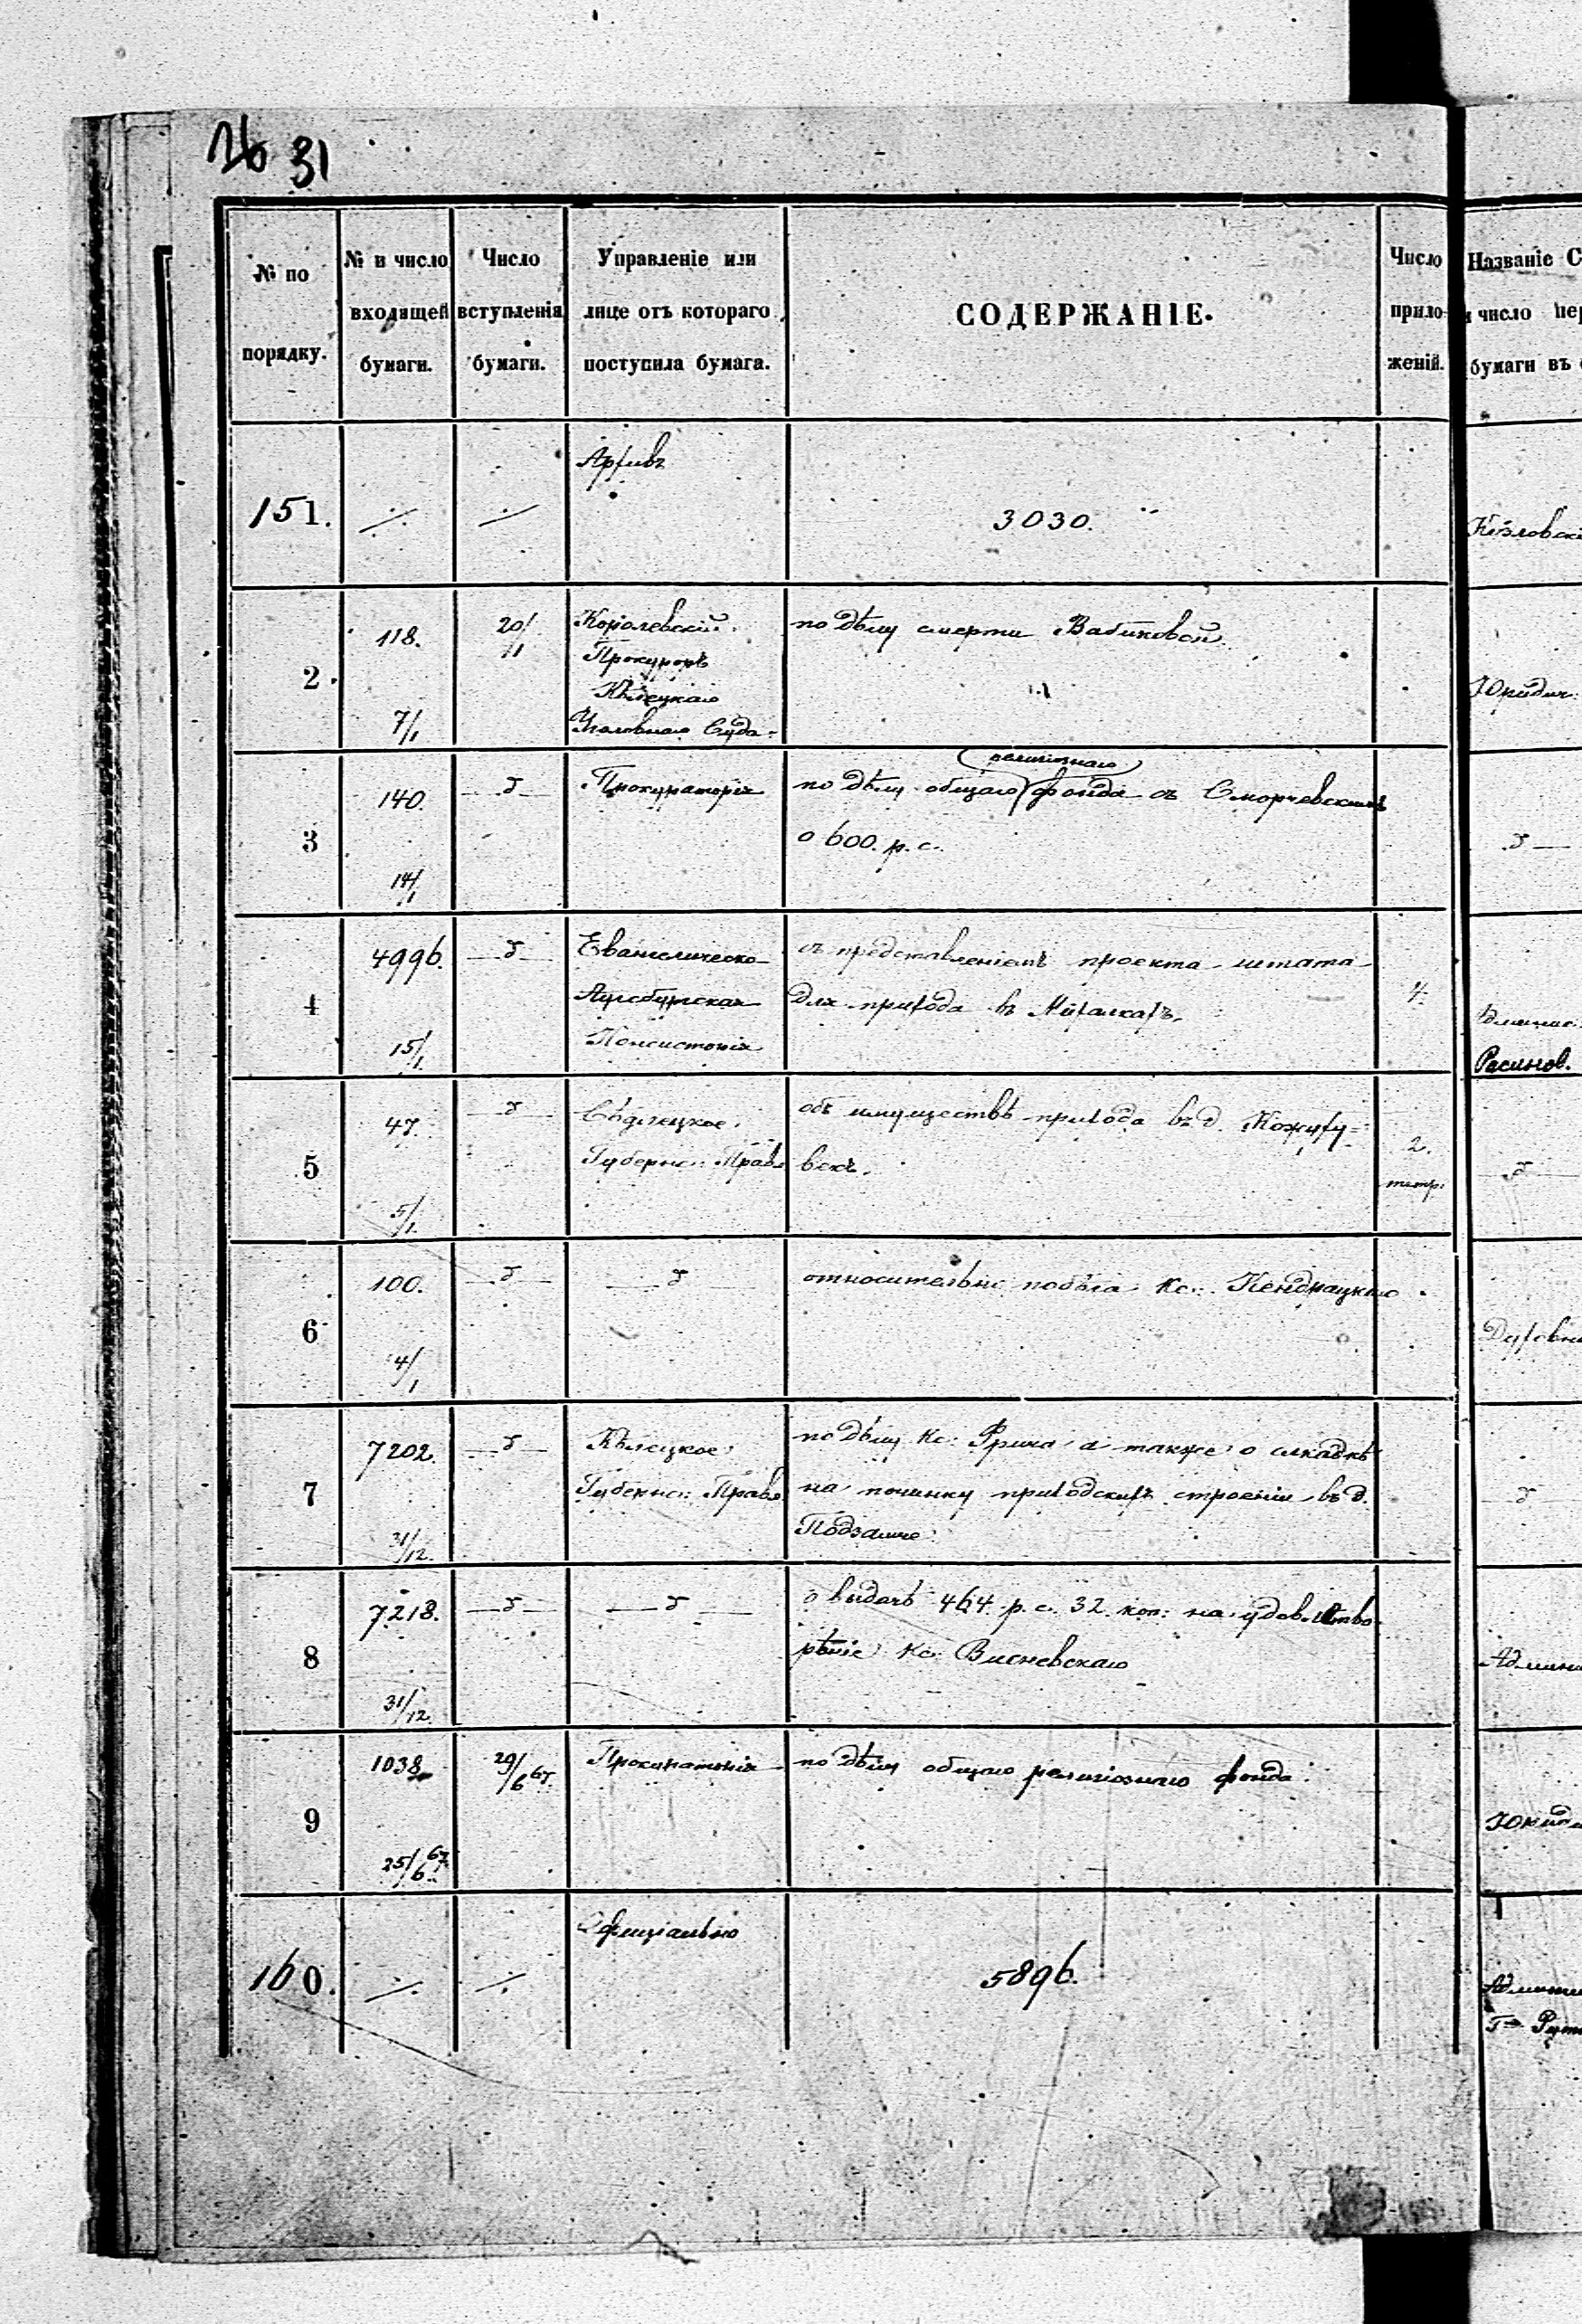 31
№ по порядку.
№ и число входящей бумаги.
Число вступленія бумаги.
Управленіе или лице отъ котораго поступила бумага.
СОДЕРЖАНІЕ.
Число приложеній.
Названіе С
число пер
бумаги въ
Архивъ
151. ·/· ·/· 3030.
Козловскі
2 118. 20/1 Королевскій по дѣлу смерти Бабиковой
Прокуроръ
Кѣлецкаго
7/1 Уголовнаго Суда.
Юридич.
3 140. —δ— Прокураторія по дѣлу общаго религіознаго фонда съ Скорчевскимъ
о 600. р. с.
14/1
—δ—
4 4996. —δ— Евангелическо- съ представленіемъ проекта штата
Аугсбургская для прихода въ Михалкахъ. 4.
15/1 Консисторія
5 47. —δ— Сѣдлецкое объ имуществѣ прихода въ д. Кожуху-
Губернс: Правл вскъ. 2.
тетр.
5/1
—δ—
6 100. —δ— —δ— относительно побѣга Кс:. Кендрацкаго
4/1
Духовны
7 7202. —δ— Кѣлецкое по дѣлу Кс: Фрича а также о складкѣ
Губернс: Правл на починку приходскихъ строеніи въ д.
31/12. Подзамче.
—δ—
8 7218. —δ— —δ— о выдачѣ 464. р. с. 32. коп: на удовлетво-
рѣніе Кс: Висневскаго
31/12.
Админи
9 1038 29/6 67. Прокураторія по дѣлу общаго религіознаго фонда.
25/6 67.
Юриди
Официально
160. ·/· ·/· 5896.